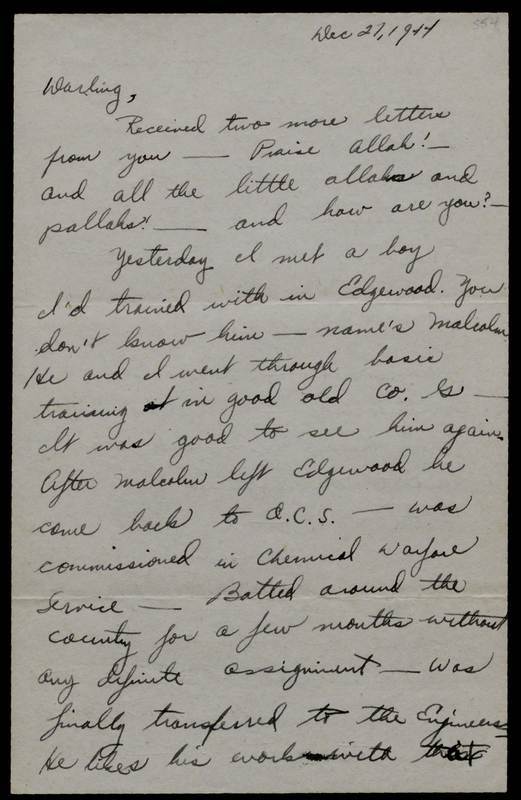 554
Dec 27, 1944
Darling,
Received two more letters
from you — Praise Allah! —
and all the little allahs and
pallahs! — and how are you? —
Yesterday I met a boy
I'd trained with in Edgewood. You
don't know him — name's Malcolm.
He and I went through basic
training at in good old Co. G —
It was good to see him again.
After Malcolm left Edgewood he
came back to O.C.S. — was
commissioned in Chemical Warfare
Service — Batted around the
country for a few months without
any definite assignment — was
finally transferred to the Engineers —
He likes his work with